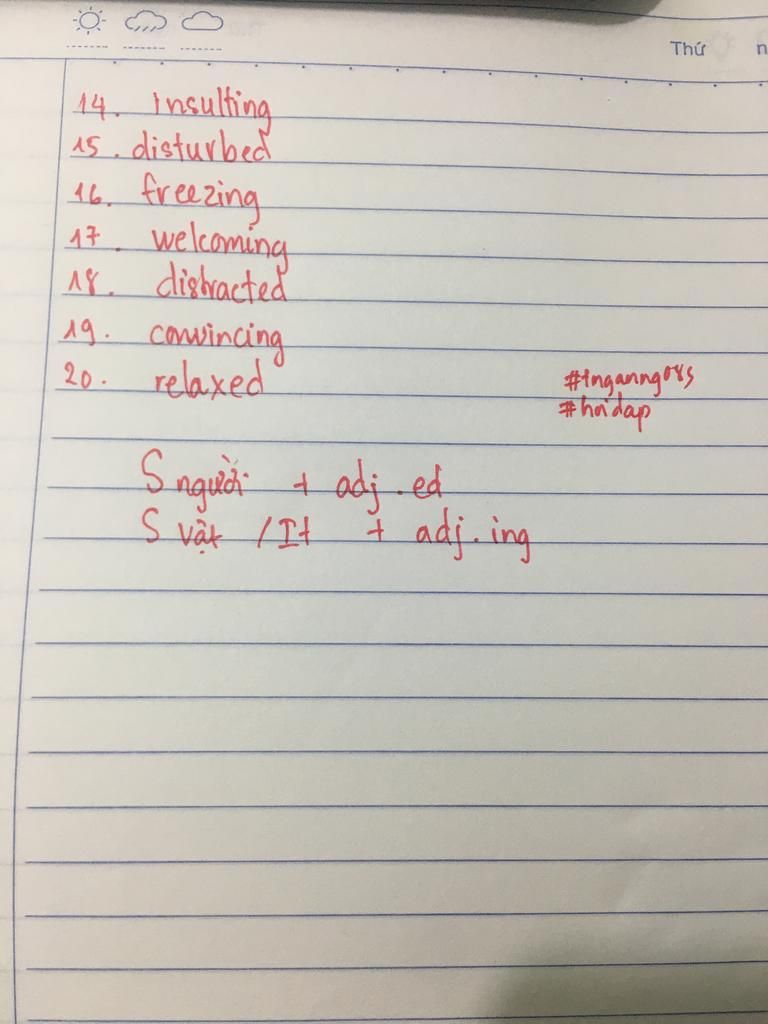 Thứ n
14. insulting
15. disturbed
16. freezing
17. welcoming
18. distracted
19. convincing
20. relaxed
#tnganng085
#hoidap
S người + adj.ed
S vật / It + adj.ing